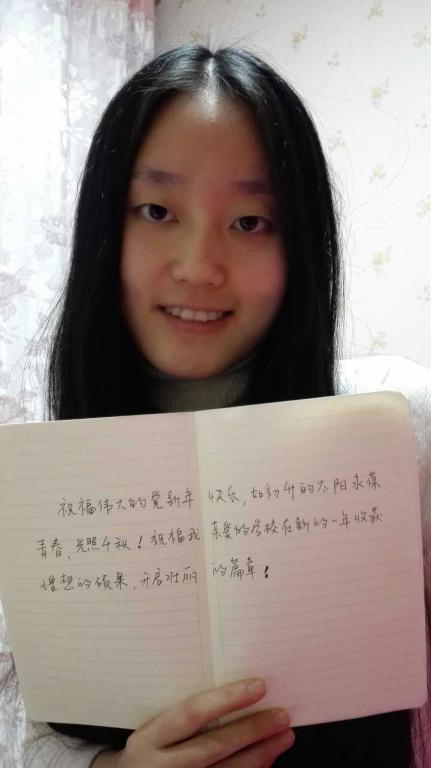 祝福伟大的党新年快乐,如初升的太阳永葆
青春、光照千秋!祝福我亲爱的学校在新的一年收获
理想的硕果,开启壮丽的篇章!